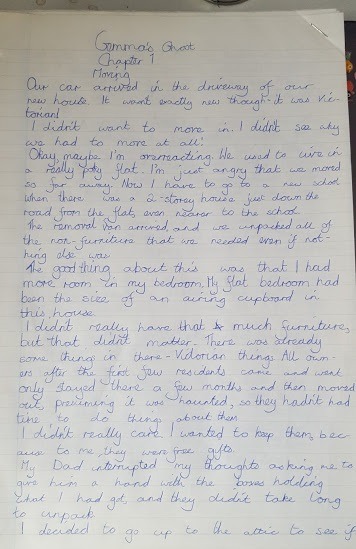 Gamma's Ghost
Chapter 1
Moving
Our car arrived in the driveway of our
new house. It wasnt exactly new though - it was Vic-
torian!
I didn't want to move in. I didn't see why
we had to move at all!
Okay, maybe I'm overreacting. We used to live in
a really poky flat. I'm just angry that we moved
so far away. Now I have to go to a new school
when there was a 2-storey house just down the
road from the flat, even nearer to the school.
The removal van arrived, and we unpacked all of
the non-furniture that we needed even if not-
hing else was.
The good thing about this was that I had
more room in my bedroom. My flat bedroom had
been the size of an airing cupboard in
this house.
I didn't really have that much furniture,
but that didn't matter. There was already
some thing in there - Victorian things. All own-
ers after the first few residents came and went
only stayed there a few months and then moved
out, presuming it was haunted, so they hadn't had
time to do thing about them
I didn't really care. I wanted to keep them, bec-
ause to me, they were free gifts.
My Dad interrupted my thoughts asking me to
give him a hand with the boxes holding
what I had got, and they didn't take long
to unpack.
I decided to go up to the attic to see if